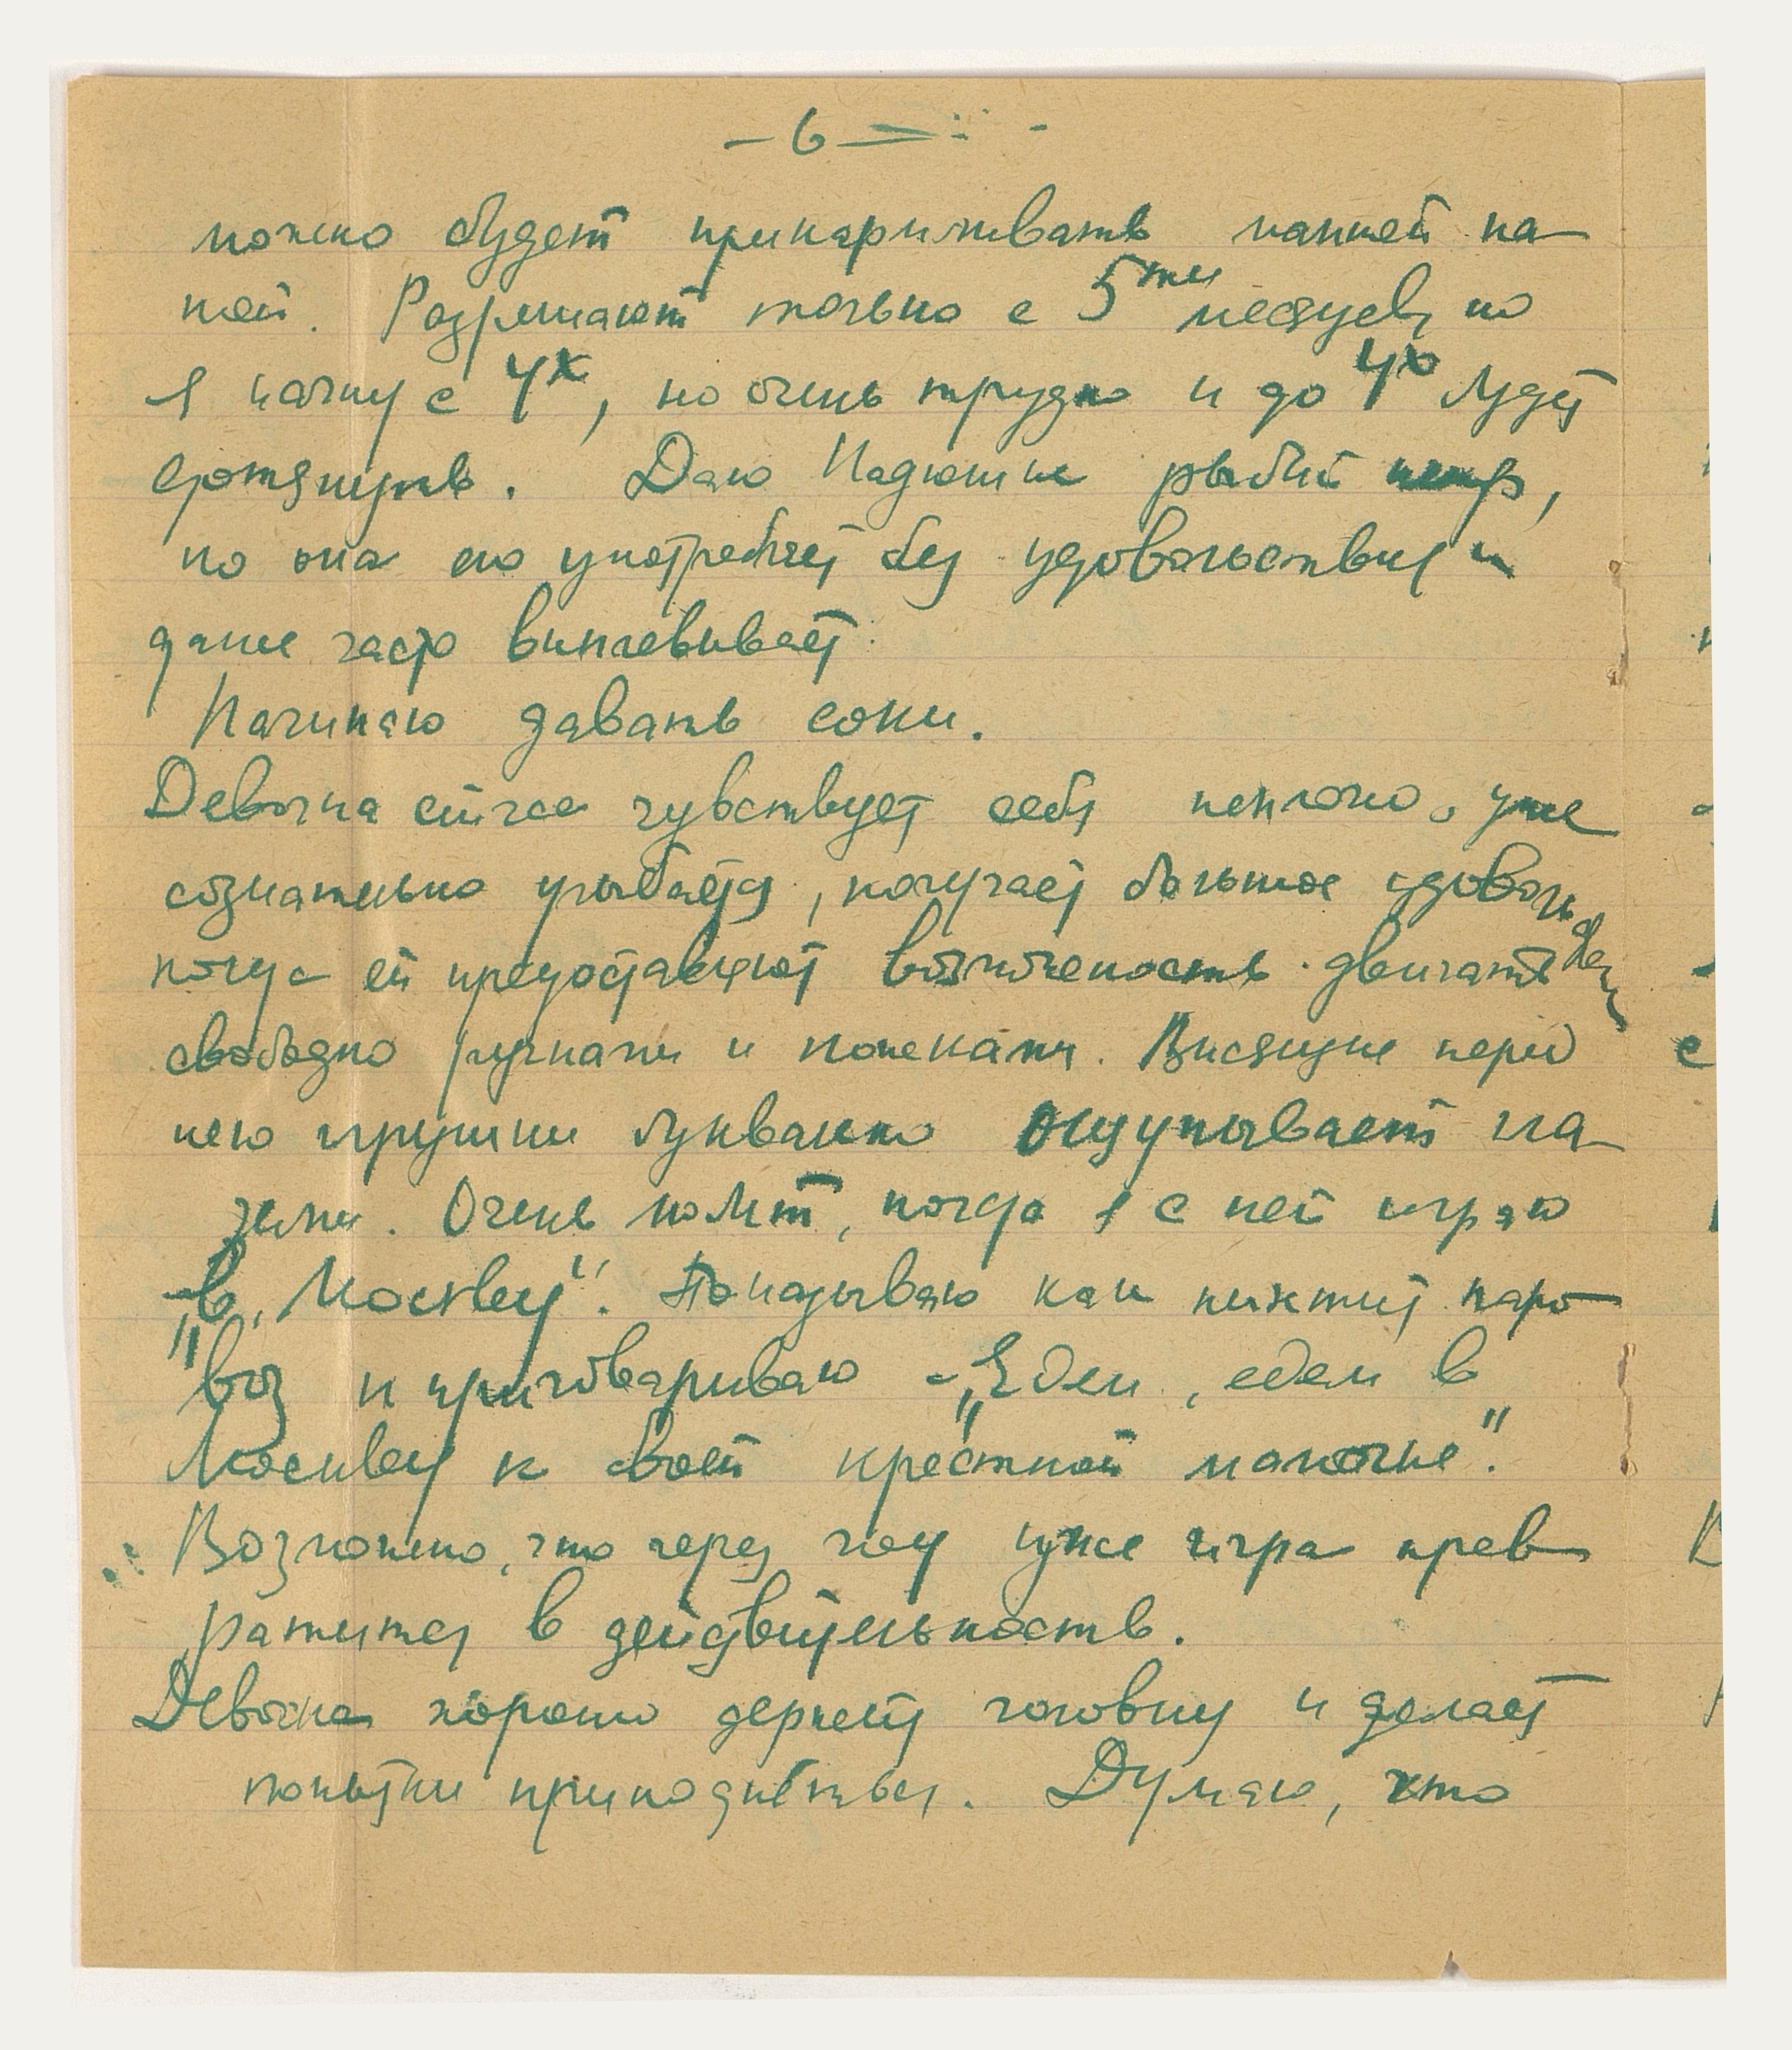 - 6 -
можно будет прикармливать манной ка-
шей. Разрешают только с 5ти месяцев, но
я начну с 4х, но очень трудно и до 4х будет
дотянуть. Даю Надюшке рыбий жир,
но она его употребляет без удовольствия и
даже часто выплевывает.
Начинаю давать соки.
Девочка сейчас чувствует себя неплохо, уже
сознательно улыбается, получает большое удовольствие,
когда ей предоставляют возможность двигать
свободно ручками и ножками. Висящие перед
нею игрушки буквально ощупывает гла-
зами. Очень любит, когда я с ней играю
"в Москву". Показываю как пыхтит паро-
воз и приговариваю - "Едем, едем в
Москву к своей крёстной мамочке".
Возможно, что через год уже игра прев-
ратится в действительность.
Девочка хорошо держит головку и делает
попытки приподняться. Думаю, что